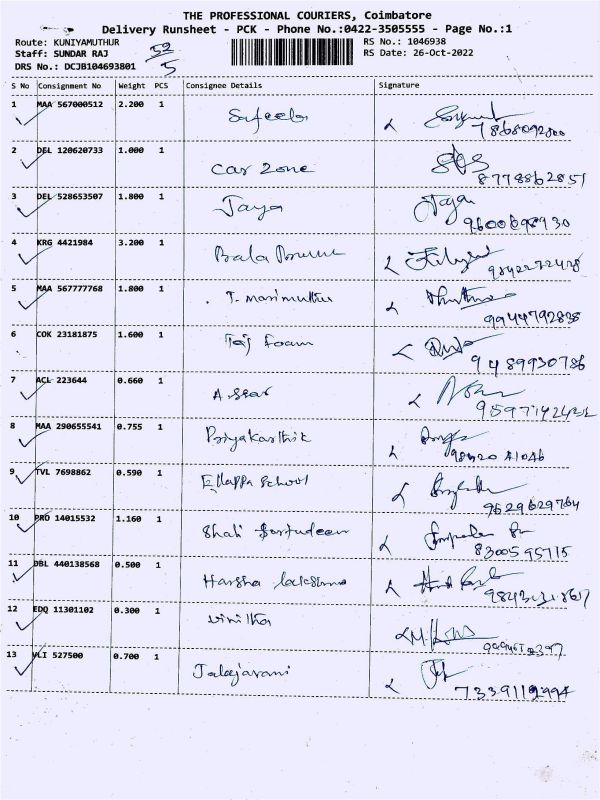 THE PROFESSIONAL COURIERS, Coimbatore
Delivery Runsheet - PCK - Phone No.:0422-3505555 - Page No.:1
Route: KUNIYAMUTHUR RS No.: 1046938
Staff: SUNDAR RAJ RS Date: 26-Oct-2022
DRS No.: DCJB104693801
S No Consignment No Weight PCS Consignee Details Signature
1 MAA 567000512 2.200 1 Safeela
2 DEL 120620733 1.000 1 Car Zone
8778862851
3 DEL 528653507 1.800 1 Jaya
9600698930
4 KRG 4421984 3.200 1 Bala
5 MAA 567777768 1.800 1 T. Marimuthu
9944792838
6 COK 23181875 1.600 1 Taj Foam
9489930786
7 ACL 223644 0.660 1
8 MAA 290655541 0.755 1 Priyakarthik
9 TVL 7698862 0.590 1 Ellappa School
9629629764
10 PRO 14015532 1.160 1
8300595715
11 DBL 440138568 0.500 1 Harsha
12 EDQ 11301102 0.300 1
13 VLI 527500 0.700 1 Jalajarani